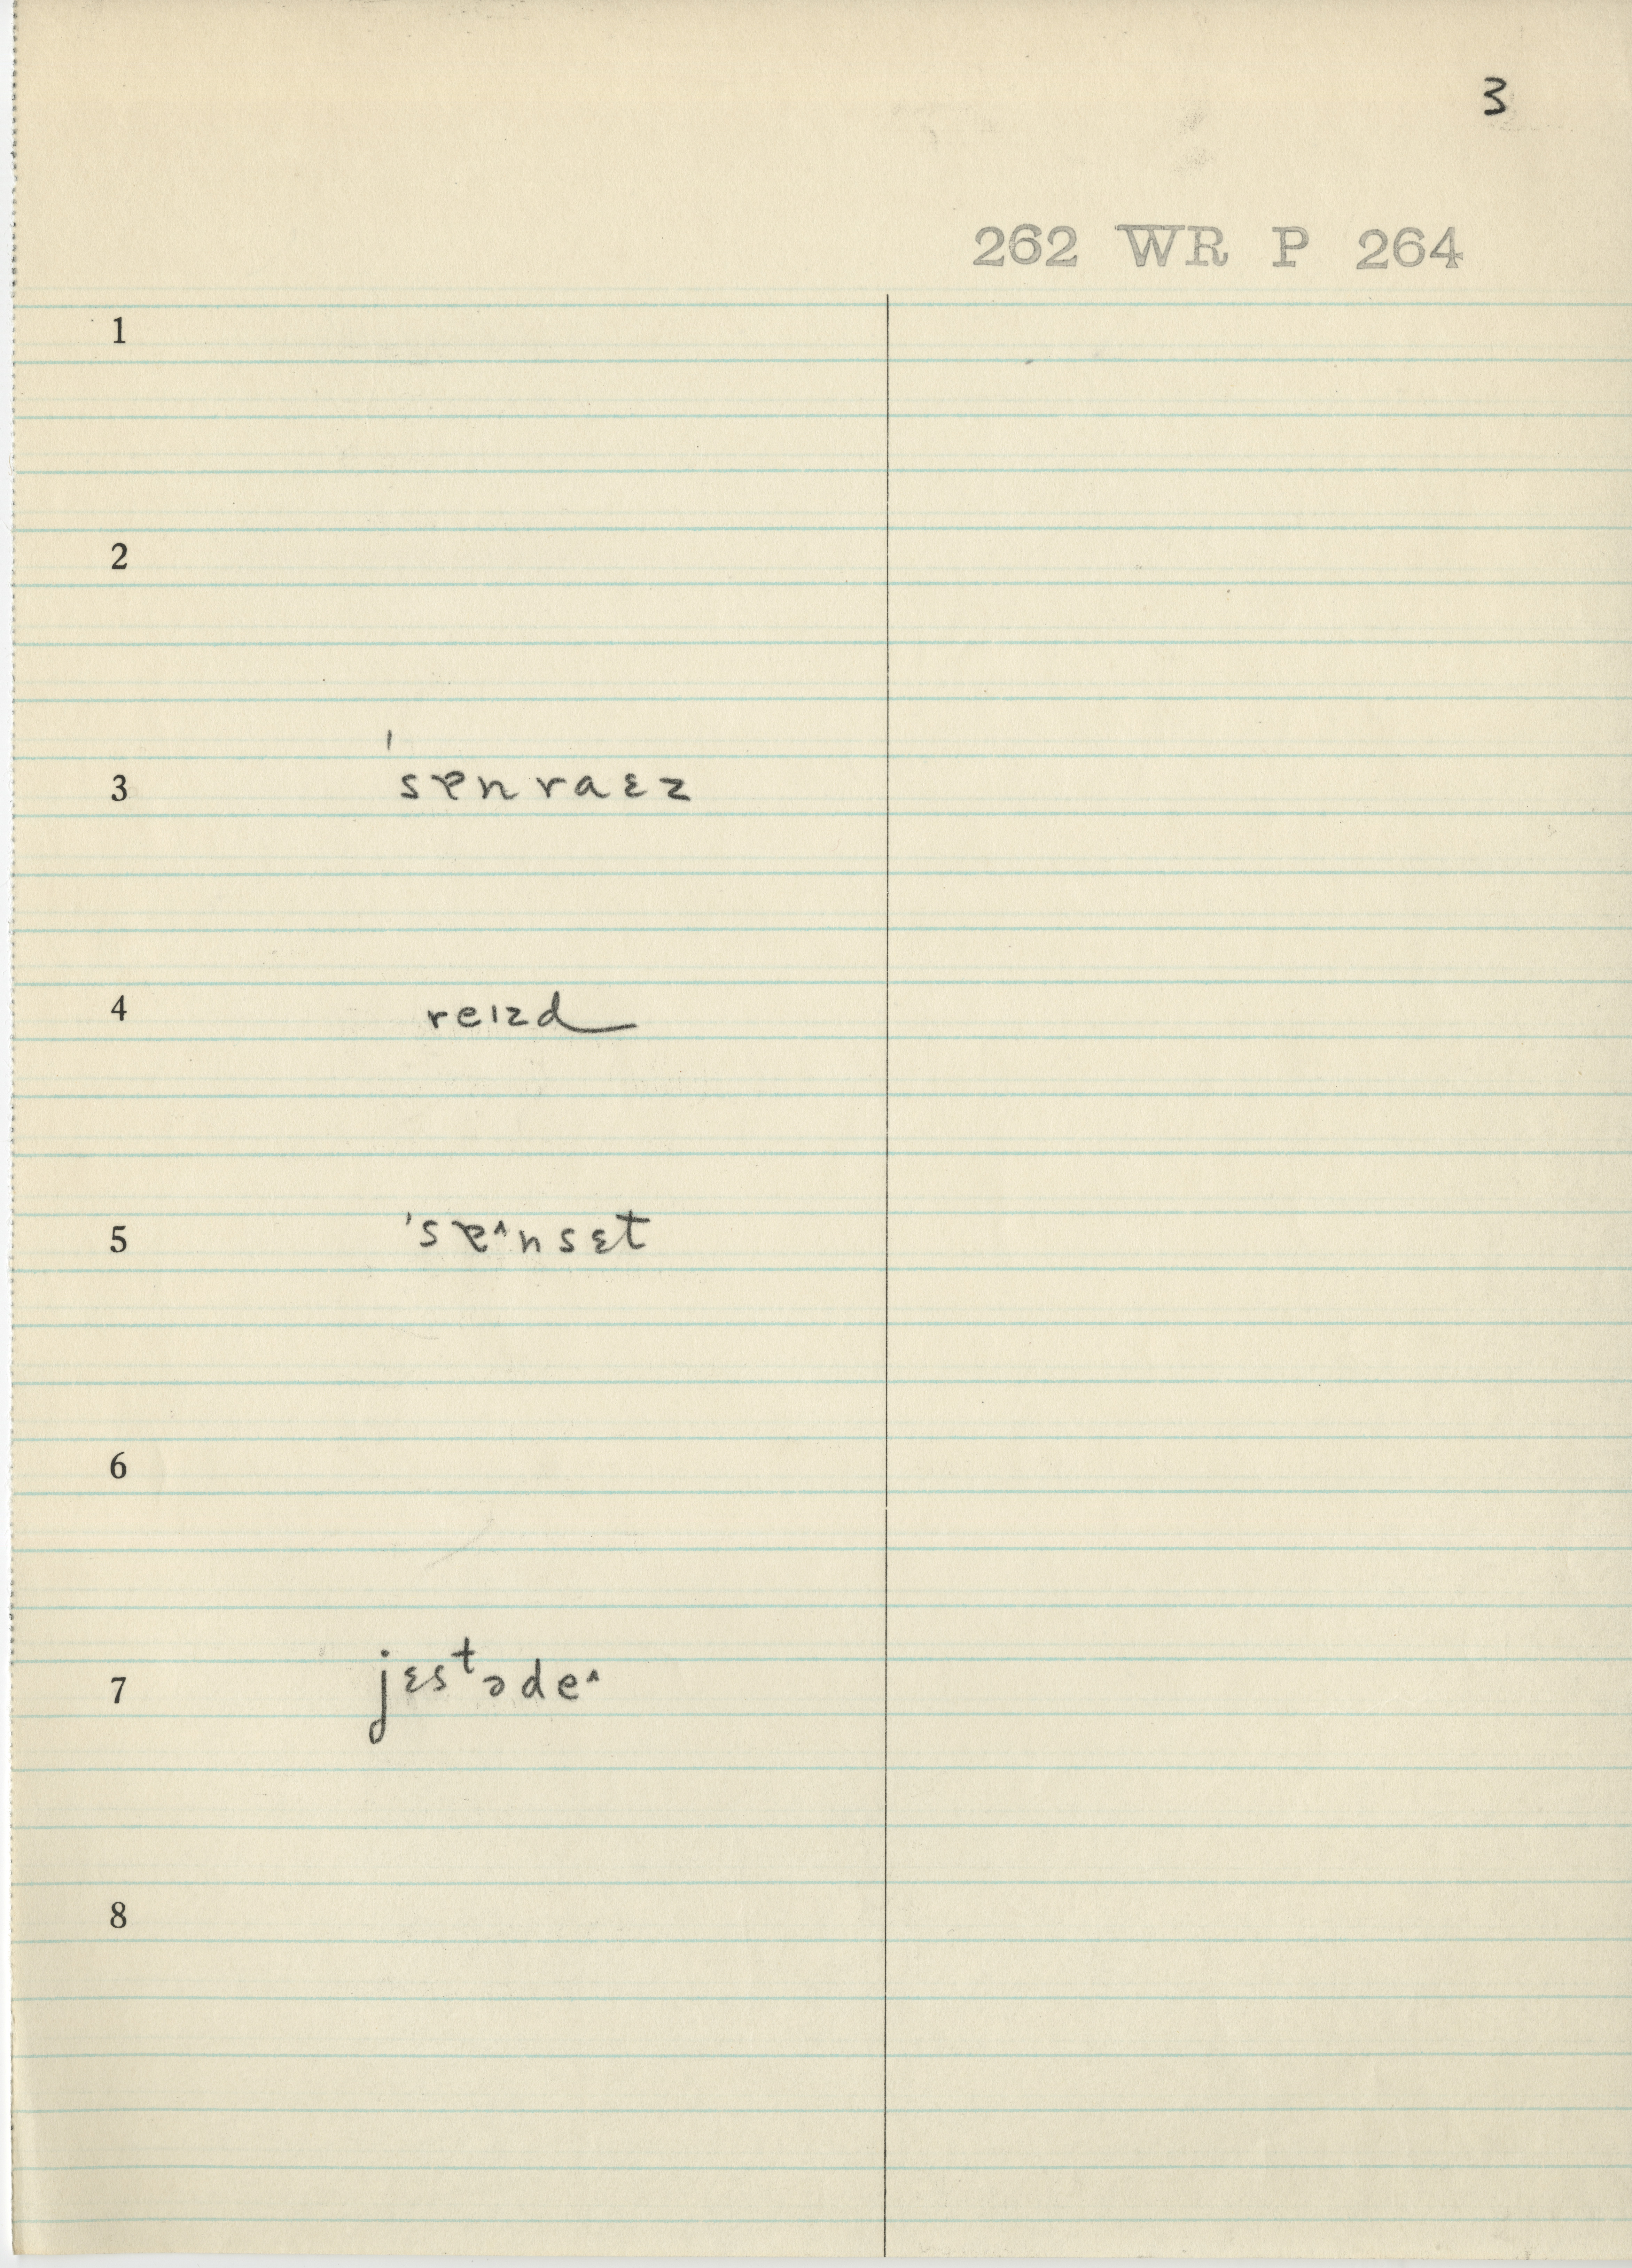 3
262 WR P 264
1
2
3 'sɐnraɛz
4 reızd
5 'sɐ^nsɛt
6
7 jɛstəde^
8